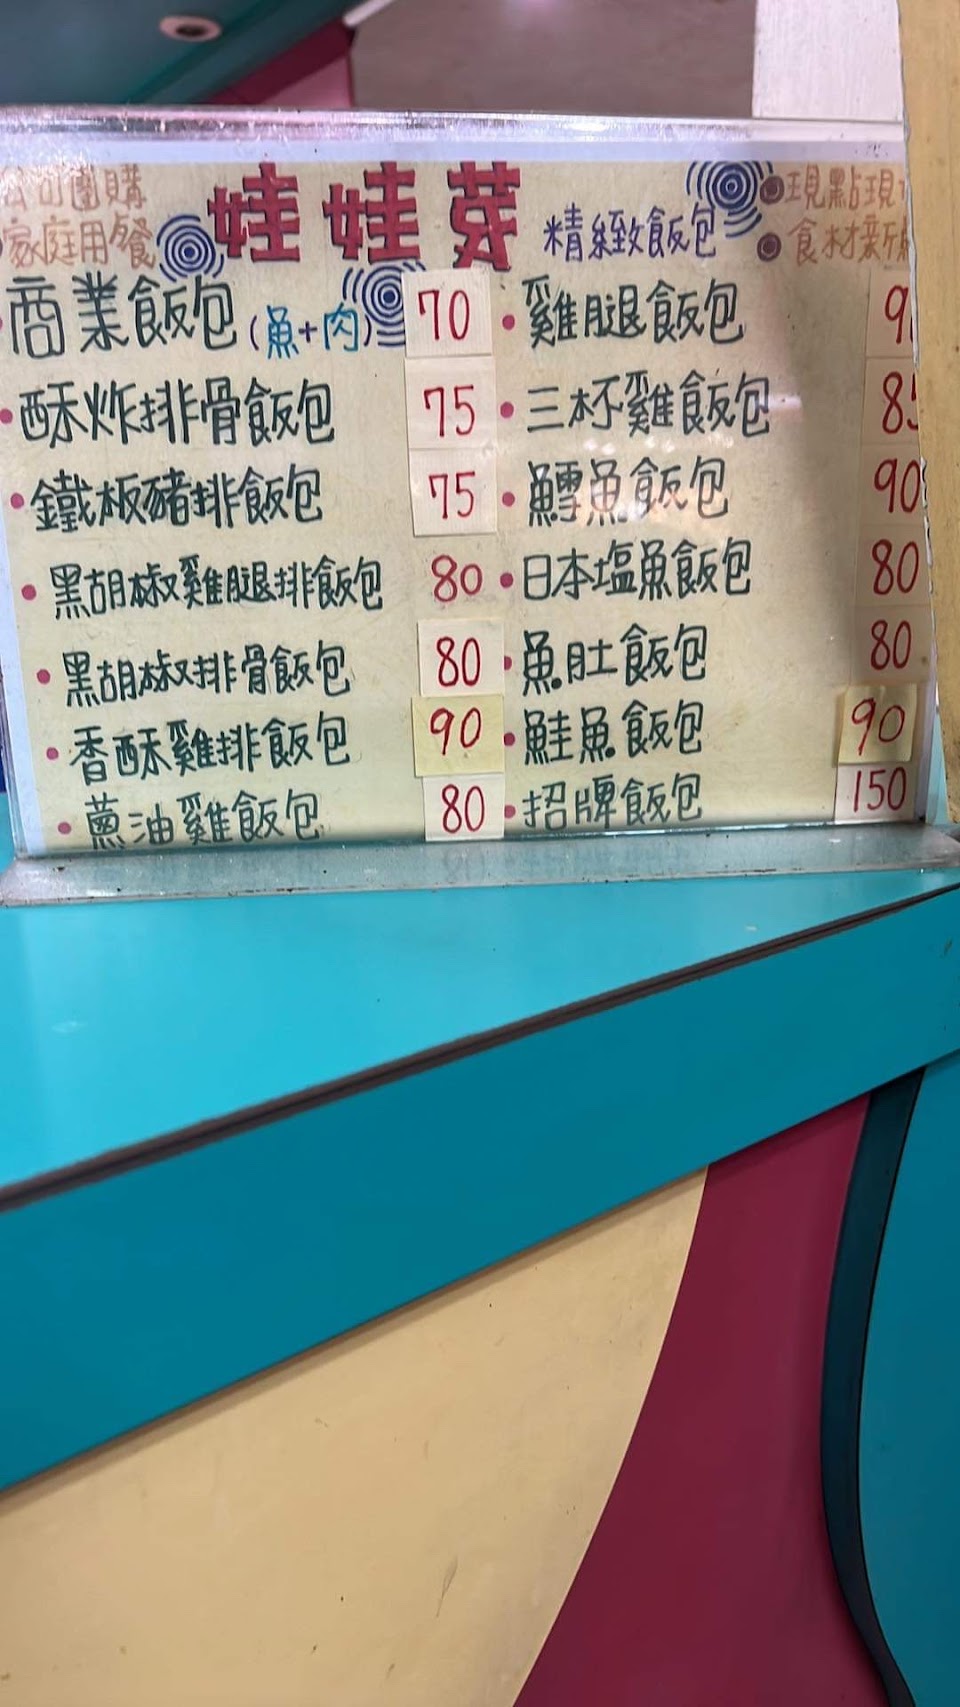 團購
家庭用餐
娃娃芽 精緻飯包
現點現
食材新
商業飯包(魚+肉) 70
• 酥炸排骨飯包 75
• 鐵板豬排飯包 75
• 黑胡椒雞腿排飯包 80
• 黑胡椒排骨飯包 80
• 香酥雞排飯包 90
• 蔥油雞飯包 80
• 雞腿飯包 9
• 三杯雞飯包 85
• 鱈魚飯包 90
• 日本塩魚飯包 80
• 魚肚飯包 80
• 鮭魚飯包 90
• 招牌飯包 150